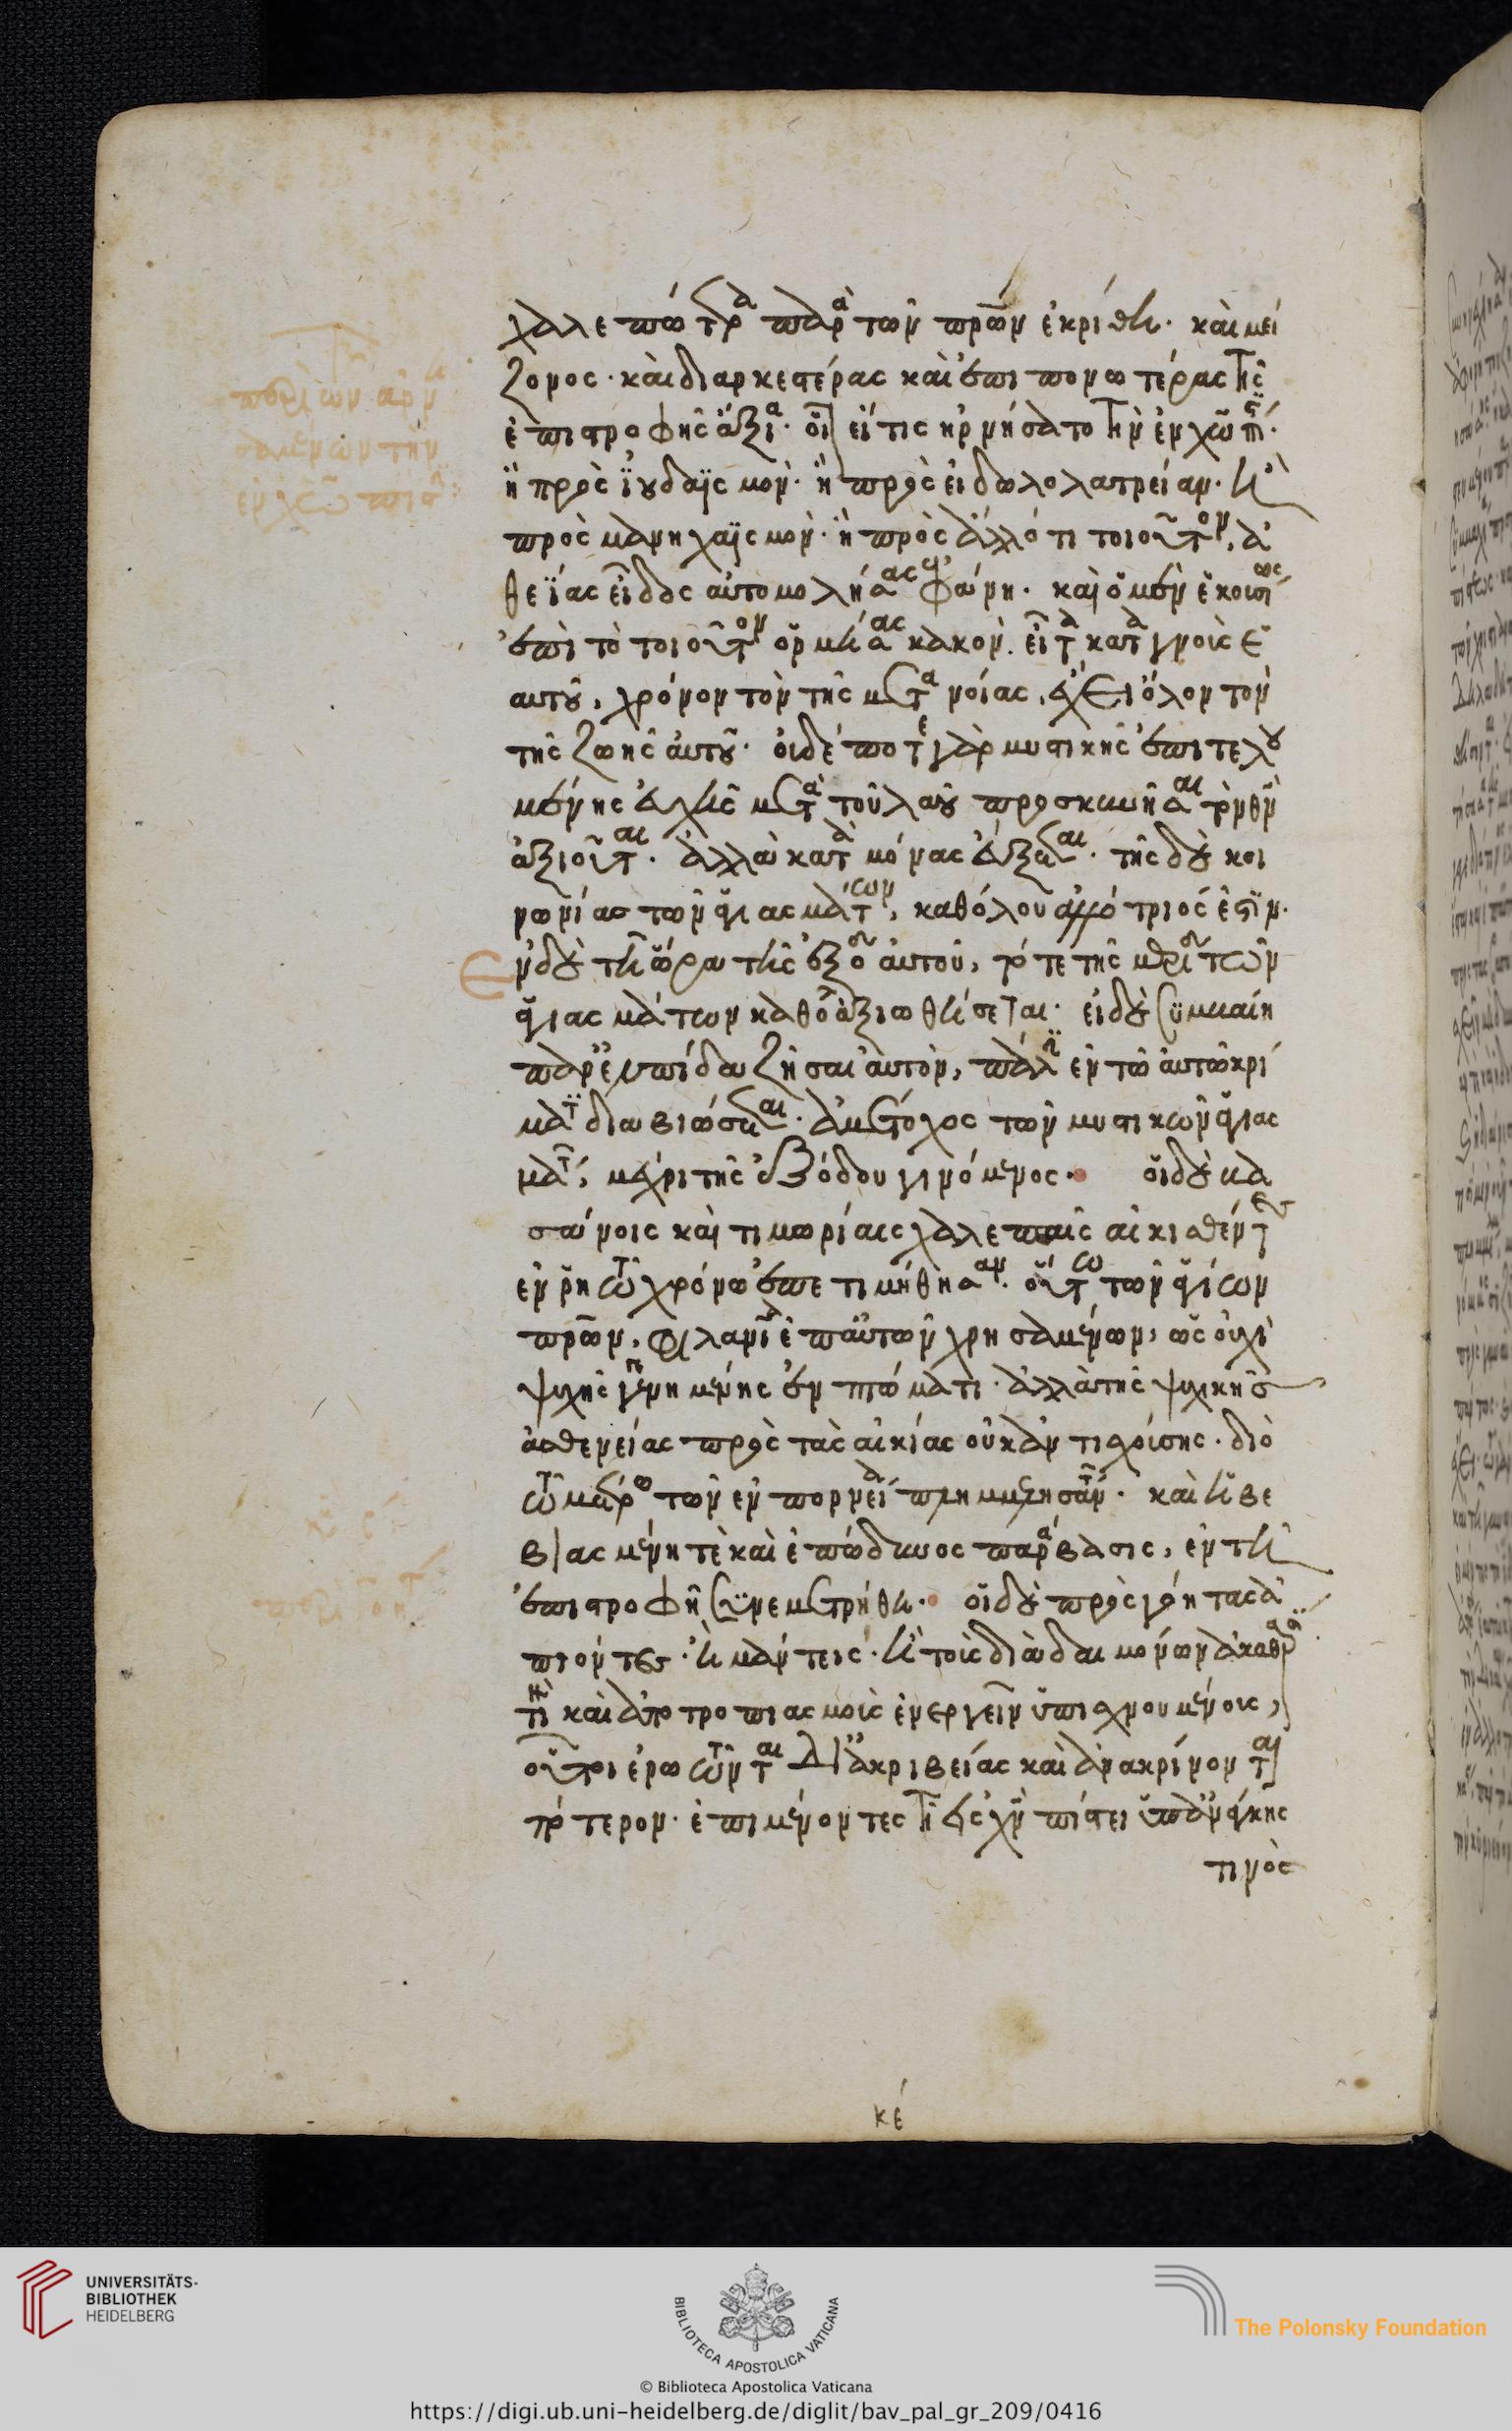 χαλεπώτερα παρὰ τῶν πατέρων ἐκρίθη· καὶ μεί
ζονος· καὶ διαρκεστέρας καὶ ἐπιπονωτέρας τῆς
ἐπιστροφῆς ἄξια· οἷον εἴ τις ἠρνήσατο τὴν ἐν χῶ πίστιν·
ἢ πρὸς ἰουδαϊσμὸν· ἢ πρὸς εἰδωλολατρείαν· ἢ
πρὸς μανηχαϊσμὸν· ἢ πρὸς ἄλλό τι τοιοῦτον, ἀ
θεΐας εἶδος αὐτομολήσας φαίνη· καὶ ὁ μὲν ἑκουσίως
ἐπὶ τὸ τοιοῦτον ὁρμήσας κακὸν· εἶτα καταγνοὺς ἑ
αυτοῦ, χρόνον τὸν τῆς μετανοίας, ἔχει ὅλον τὸν
τῆς ζωῆς αὐτοῦ· οὐδέποτε γὰρ μυστικῆς ἐπιτελου
μένης εὐχῆς μετὰ τοῦ λαοῦ προσκυνῆσαι τὸν θν
ἀξιοῦται· ἀλλὰ κατὰ μόνας εὔξεται· τῆς δὲ κοι
νωνίας τῶν ἁγιασμάτων, καθόλου ἀλλότριός ἐστιν·
Ἐν δὲ τῆ ὥρα τῆς ἐξόδου αὐτοῦ, τότε τῆς μερίδος τῶν
ἁγιασμάτων καθόλου ἀξιωθήσεται· εἰ δὲ συμβαίη
παρ' ἐλπίδα ζῆσαι αὐτὸν, πάλιν ἐν τῶ αὐτῶ κρί
ματι διαβιώσεται· ἀμέτοχος τῶν μυστικῶν ἁγιασ
μάτων, μέχρι τῆς ἐξόδου γινόμενος· οἱ δὲ βα
σάνοις καὶ τιμωρίαις χαλεπαῖς αἰκισθέντες
ἐν ῥητῶ χρόνω ἐπετιμήθησαν· οὕτω τῶν ἁγίων
πατέρων, φιλανθρωπία ἐπ' αὐτῶν χρησαμένων, ὡς οὐχὶ
ψυχῆς γεγενημένης ἐν πτώματι· ἀλλὰ τῆς ψυχικῆς
ἀσθενείας πρὸς τὰς αἰκίας οὐκ ἀντισχούσης· διὸ
τῶ μέτρω τῶν ἐν πορνεία πλημμελησάντων· καὶ ἡ βε
βιασμένη τὲ καὶ ἐπώδυνος παράβασις, ἐν τῆ
ἐπιστροφῆ συνεμετρήθη· οἱ δὲ πρὸς γόητας ἀ
πιόντες· ἢ μάντεις· ἢ τοῖς διὰ δαιμόνων καθάρσιά
τινα καὶ ἀποτροπιασμοὺς ἐνεργεῖν ὑπισχνουμένοις,
οὗτοι ἐρωτῶνται δι' ἀκριβείας καὶ ἀνακρίνονται
πότερον· ἐπιμένοντες τῆ εἰς χν πίστει ὑπ' ἀνάγκης
τινὸς
κέ
UNIVERSITÄTS-
BIBLIOTHEK
HEIDELBERG
BIBLIOTECA APOSTOLICA VATICANA
© Biblioteca Apostolica Vaticana
The Polonsky Foundation
https://digi.ub.uni-heidelberg.de/diglit/bav_pal_gr_209/0416